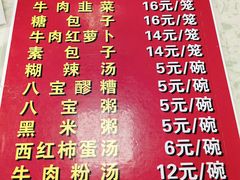 牛肉韭菜 16元/笼
糖包子 16元/笼
牛肉红萝卜 14元/笼
素包子 14元/笼
糊辣汤 5元/碗
八宝醪糟 5元/碗
八宝粥 5元/碗
黑米粥 5元/碗
西红柿蛋汤 6元/碗
牛肉粉汤 12元/碗